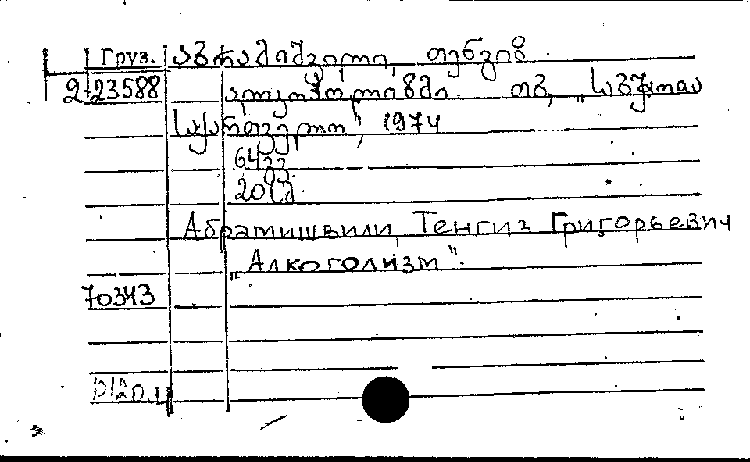 Груз. აბრამიშვილი, თენგიზ
2-23588 ალკოჰოლიზმი. თბ, „საბჭოთა
საქართველო", 1974
64გვ
20კპ.
Абрамишвили, Тенгиз Григорьевич
„Алкоголизм".
70343